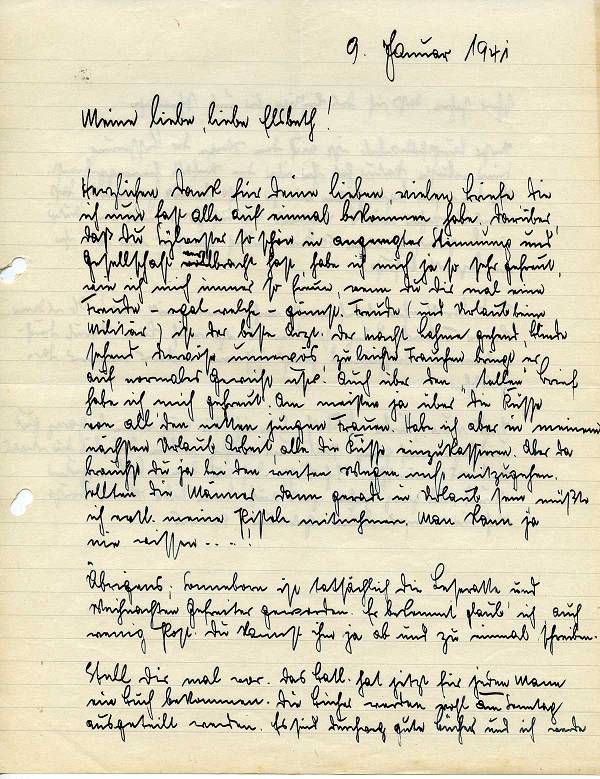 9. Januar 1941
Meine liebe, liebe Elsbeth!
Herzlichen Dank für Deine lieben, vielen Briefe die
ich nun fast alle auf einmal bekommen habe. Darüber,
daß Du Sylvester so schön in angeregter Stimmung und
Gesellschaft verbracht hast, habe ich mich ja so sehr gefreut,
wie ich mich immer so freue, wenn Du dir mal eine
Freude – egal welche – gönnst. Freude (und Urlaub beim
Militär) ist der beste Arzt. Der macht Lahme gehend, Blinde
sehend, Nervöse unnervös, zu leichte Frauchen bringt er
auf normales Gewicht usw. Auch über den "tollen" Brief
habe ich mich gefreut. Am meisten ja über die Küsse
von all' den netten jungen Frauen. Habe ich aber in meinem
nächsten Urlaub Arbeit, alle die Küsse einzukassieren. Aber da
brauchst du ja bei den ersten Wegen nicht mitzugehen.
Sollten die Männer dann gerade in Urlaub sein müßte
ich evtl. meine Pistole mitnehmen. Man kann ja
nie wissen . . . !
Übrigens, Sonneborn ist tatsächlich die und
Weihnachten Gefreiter geworden. Er bekommt glaub' ich auch
wenig Post. Du kannst ihm ja ab und zu einmal schreiben.
Stell Dir mal vor. Das Batl. hat jetzt für jeden Mann
ein Buch bekommen. Die Bücher werden wohl am Sonntag
ausgeteilt werden. Es sind durchweg gute Bücher und ich werde